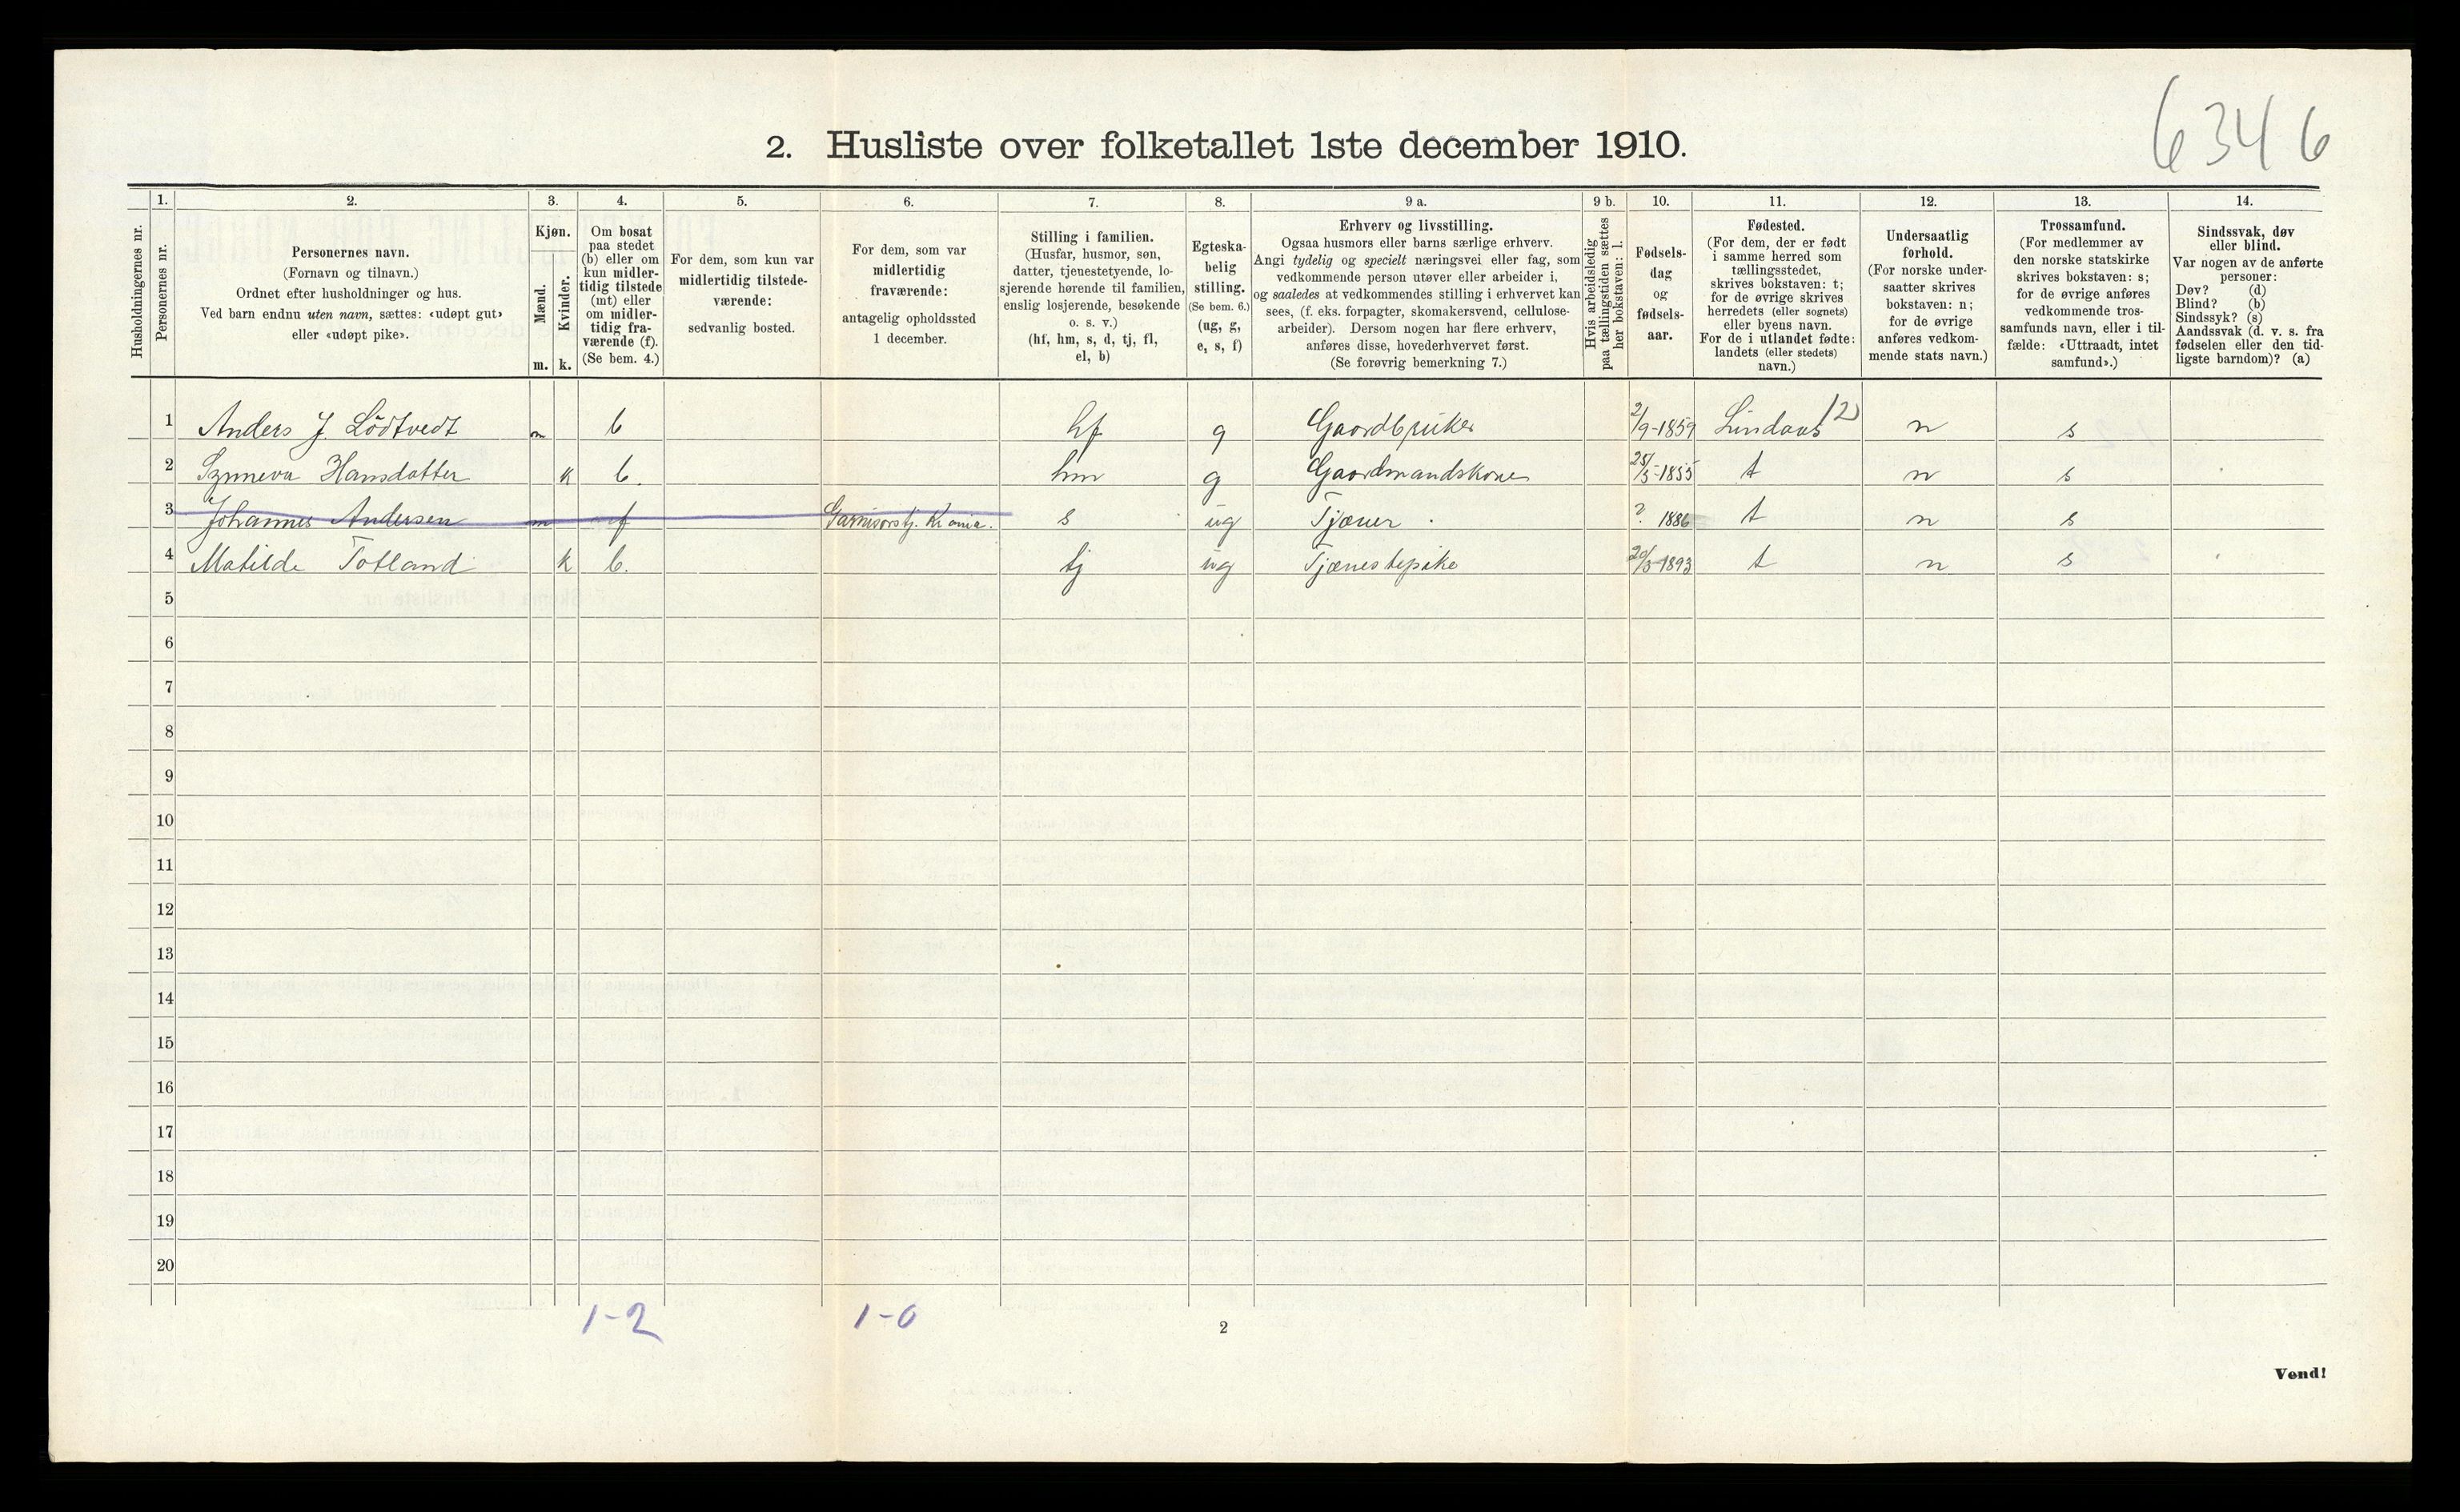 6346
2. Husliste over folketallet 1ste december 1910.
Husholdningernes nr.
1.
Personernes nr.
2.
Personernes navn.
(Fornavn og tilnavn.)
Ordnet efter husholdninger og hus.
Ved barn endnu uten navn, sættes: «udøpt gut»
eller «udøpt pike».
3.
Kjøn.
Mænd.
Kvinder.
m. k.
4.
Om bosat
paa stedet
(b) eller om
kun midler-
tidig tilstede
(mt) eller
om midler-
tidig fra-
værende (f).
(Se bem. 4.)
5.
For dem, som kun var
midlertidig tilstede-
værende:
sedvanlig bosted.
6.
For dem, som var
midlertidig
fraværende:
antagelig opholdssted
1 december.
7.
Stilling i familien.
(Husfar, husmor, søn,
datter, tjenestetyende, lo-
sjerende hørende til familien,
enslig losjerende, besøkende
o. s. v.)
(hf, hm, s, d, tj, fl,
el, b)
8.
Egteska-
belig
stilling.
(Se bem. 6.)
(ug, g,
e, s, f)
9 a.
Erhverv og livsstilling.
Ogsaa husmors eller barns særlige erhverv.
Angi tydelig og specielt næringsvei eller fag, som
vedkommende person utøver eller arbeider i,
og saaledes at vedkommendes stilling i erhvervet kan
sees, (f. eks. forpagter, skomakersvend, cellulose-
arbeider). Dersom nogen har flere erhverv,
anføres disse, hovederhvervet først.
(Se forøvrig bemerkning 7.)
9 b.
Hvis arbeidsledig
paa tællingstiden sættes
her bokstaven: l.
10.
Fødsels-
dag
og
fødsels-
aar.
11.
Fødested.
(For dem, der er født
i samme herred som
tællingsstedet,
skrives bokstaven: t;
for de øvrige skrives
herredets (eller sognets)
eller byens navn.
For de i utlandet fødte:
landets (eller stedets)
navn.)
12.
Undersaatlig
forhold.
(For norske under-
saatter skrives
bokstaven: n;
for de øvrige
anføres vedkom-
mende stats navn.)
13.
Trossamfund.
(For medlemmer av
den norske statskirke
skrives bokstaven: s;
for de øvrige anføres
vedkommende tros-
samfunds navn, eller i til-
fælde: «Uttraadt, intet
samfund».)
14.
Sindssvak, døv
eller blind.
Var nogen av de anførte
personer:
Døv? (d)
Blind? (b)
Sindssyk? (s)
Aandssvak (d. v. s. fra
fødselen eller den tid-
ligste barndom)? (a)
1 Anders J. Lödtvedt m b hf g Gaardbruker 2/9-1859 Lindaas 12 n s
2 Synneva Hansdatter k b. hm g Gaardmandskone 25/5-1855 t n s
3 Johannes Andersen m f Garnisonstj. Kr.ania. s ug Tjæner ? 1886 t n s
4 Matilde Totland k b. tj ug Tjænestepike 20/5-1893 t n s
5
6
7
8
9
10
11
12
13
14
15
16
17
18
19
20
1-2 1-0
2
Vend!